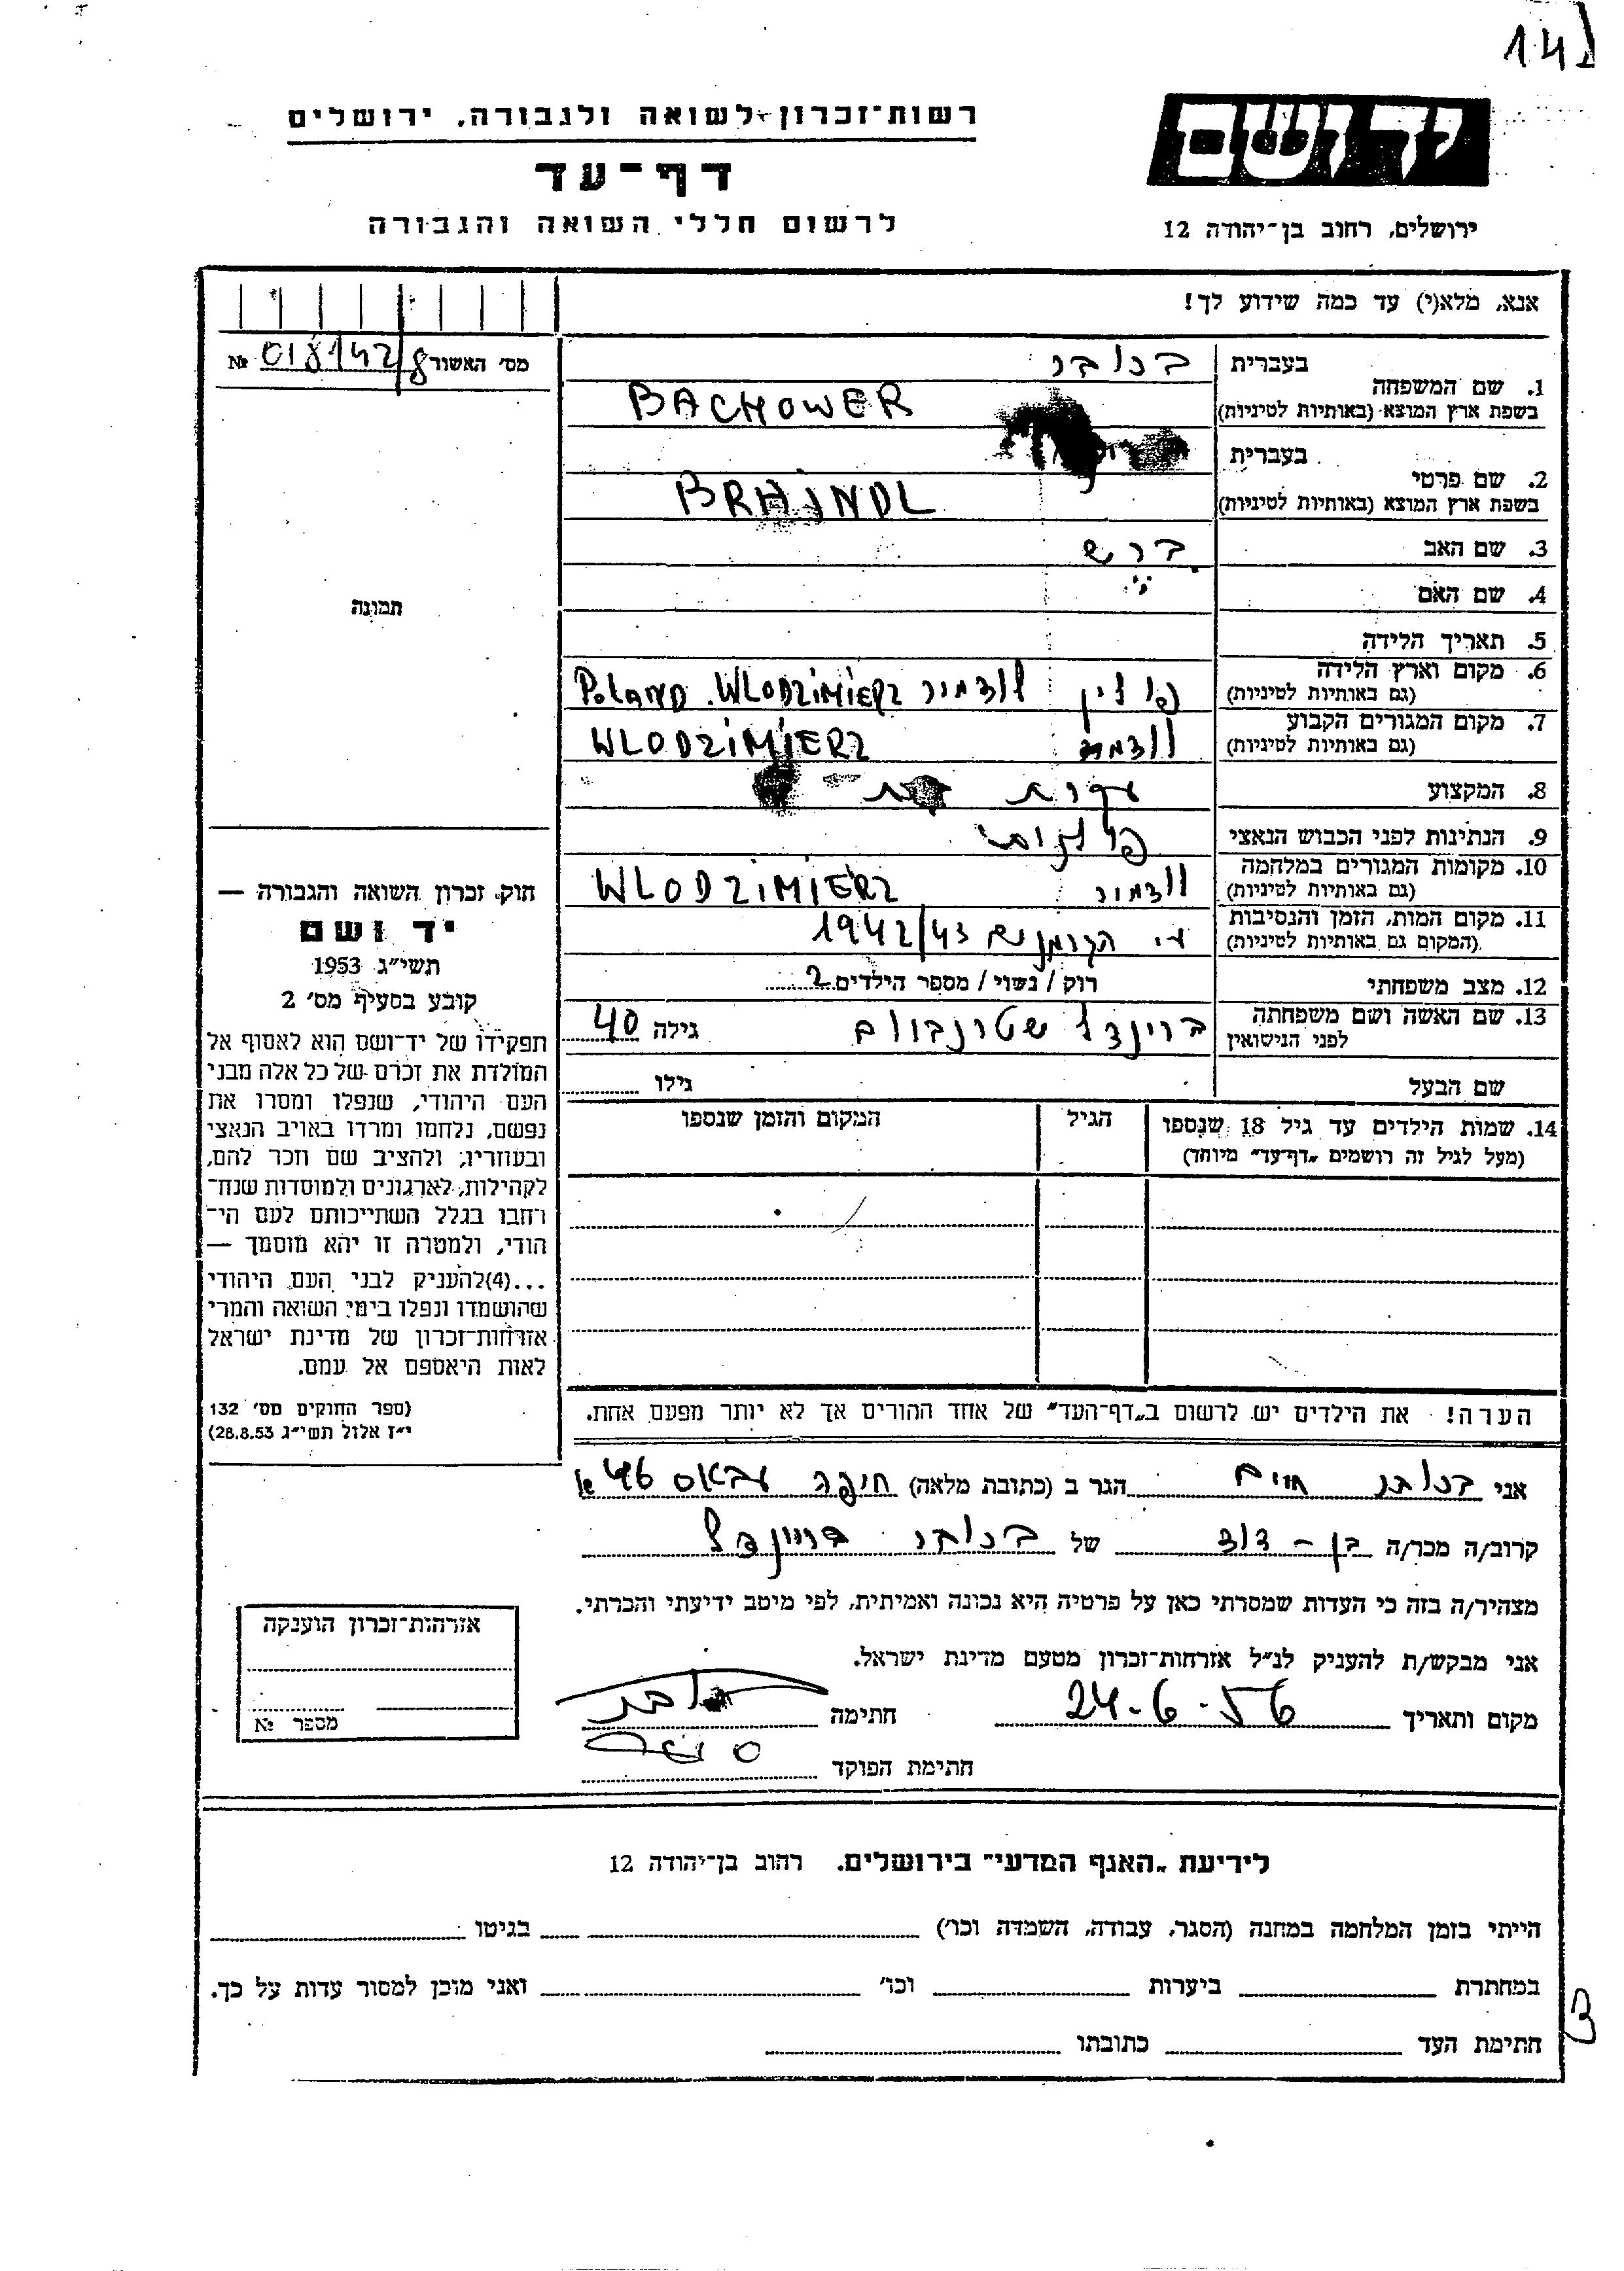 141
יד ושם
ירושלים, רחוב בן־יהודה 12
רשות־זכרון לשואה ולגבורה, ירושלים
דף־עד
לרשום חללי השואה והגבורה
אנא, מלא(י) עד כמה שידוע לך!
מס׳ האשור № 018142/8
תמונה
1. שם המשפחה
בעברית בכובר
בשפת ארץ המוצא (באותיות לטיניות) BACHOWER
2. שם פרטי
בעברית
בשפת ארץ המוצא (באותיות לטיניות) BRAJNDL
3. שם האב ברש
4. שם האם
5. תאריך הלידה
6. מקום וארץ הלידה (גם באותיות לטיניות) פולין לודמיר Poland. WLODZIMIERZ
7. מקום המגורים הקבוע (גם באותיות לטיניות) לודמיר WLODZIMIERZ
8. המקצוע עקרת בית
9. הנתינות לפני הכבוש הנאצי פולנית
10. מקומות המגורים במלחמה (גם באותיות לטיניות) לודמיר WLODZIMIERZ
11. מקום המות, הזמן והנסיבות (המקום גם באותיות לטיניות) ע״י הגרמנים 1942/43
12. מצב משפחתי רוק / נשוי / מספר הילדים 2
13. שם האשה ושם משפחתה לפני הנישואין בריינדל שטרנבוים גילה 40
שם הבעל גילו
14. שמות הילדים עד גיל 18 שנספו
(מעל לגיל זה רושמים „דף־עד״ מיוחד)
הגיל
המקום והזמן שנספו
הערה! את הילדים יש לרשום ב„דף־העד״ של אחד ההורים אך לא יותר מפעם אחת.
חוק זכרון השואה והגבורה —
יד ושם
תשי״ג 1953
קובע בסעיף מס׳ 2
תפקידו של יד־ושם הוא לאסוף אל
המולדת את זכרם של כל אלה מבני
העם היהודי, שנפלו ומסרו את
נפשם, נלחמו ומרדו באויב הנאצי
ובעוזריו, ולהציב שם וזכר להם,
לקהילות, לארגונים ולמוסדות שנח־
רבו בגלל השתייכותם לעם הי־
הודי, ולמטרה זו יהא מוסמך —
...(4)להעניק לבני העם היהודי
שהושמדו ונפלו בימי השואה והמרי
אזרחות־זכרון של מדינת ישראל
לאות היאספם אל עמם.
(ספר החוקים מס׳ 132
י״ז אלול תשי״ג 28.8.53)
אני בכובר חיים הגר ב (כתובת מלאה) חיפה עבאס 46 א
קרוב/ה מכר/ה בן - דוד של בכובר בריינדל
מצהיר/ה בזה כי העדות שמסרתי כאן על פרטיה היא נכונה ואמיתית, לפי מיטב ידיעתי והכרתי.
אני מבקש/ת להעניק לנ״ל אזרחות־זכרון מטעם מדינת ישראל.
מקום ותאריך 24-6-56 חתימה
חתימת הפוקד
אזרחות־זכרון הוענקה
מספר №
לידיעת „האגף המדעי״ בירושלים. רחוב בן־יהודה 12
הייתי בזמן המלחמה במחנה (הסגר, עבודה, השמדה וכו׳) בגיטו
במחתרת ביערות וכו׳ ואני מוכן למסור עדות על כך.
חתימת העד כתובתו
3